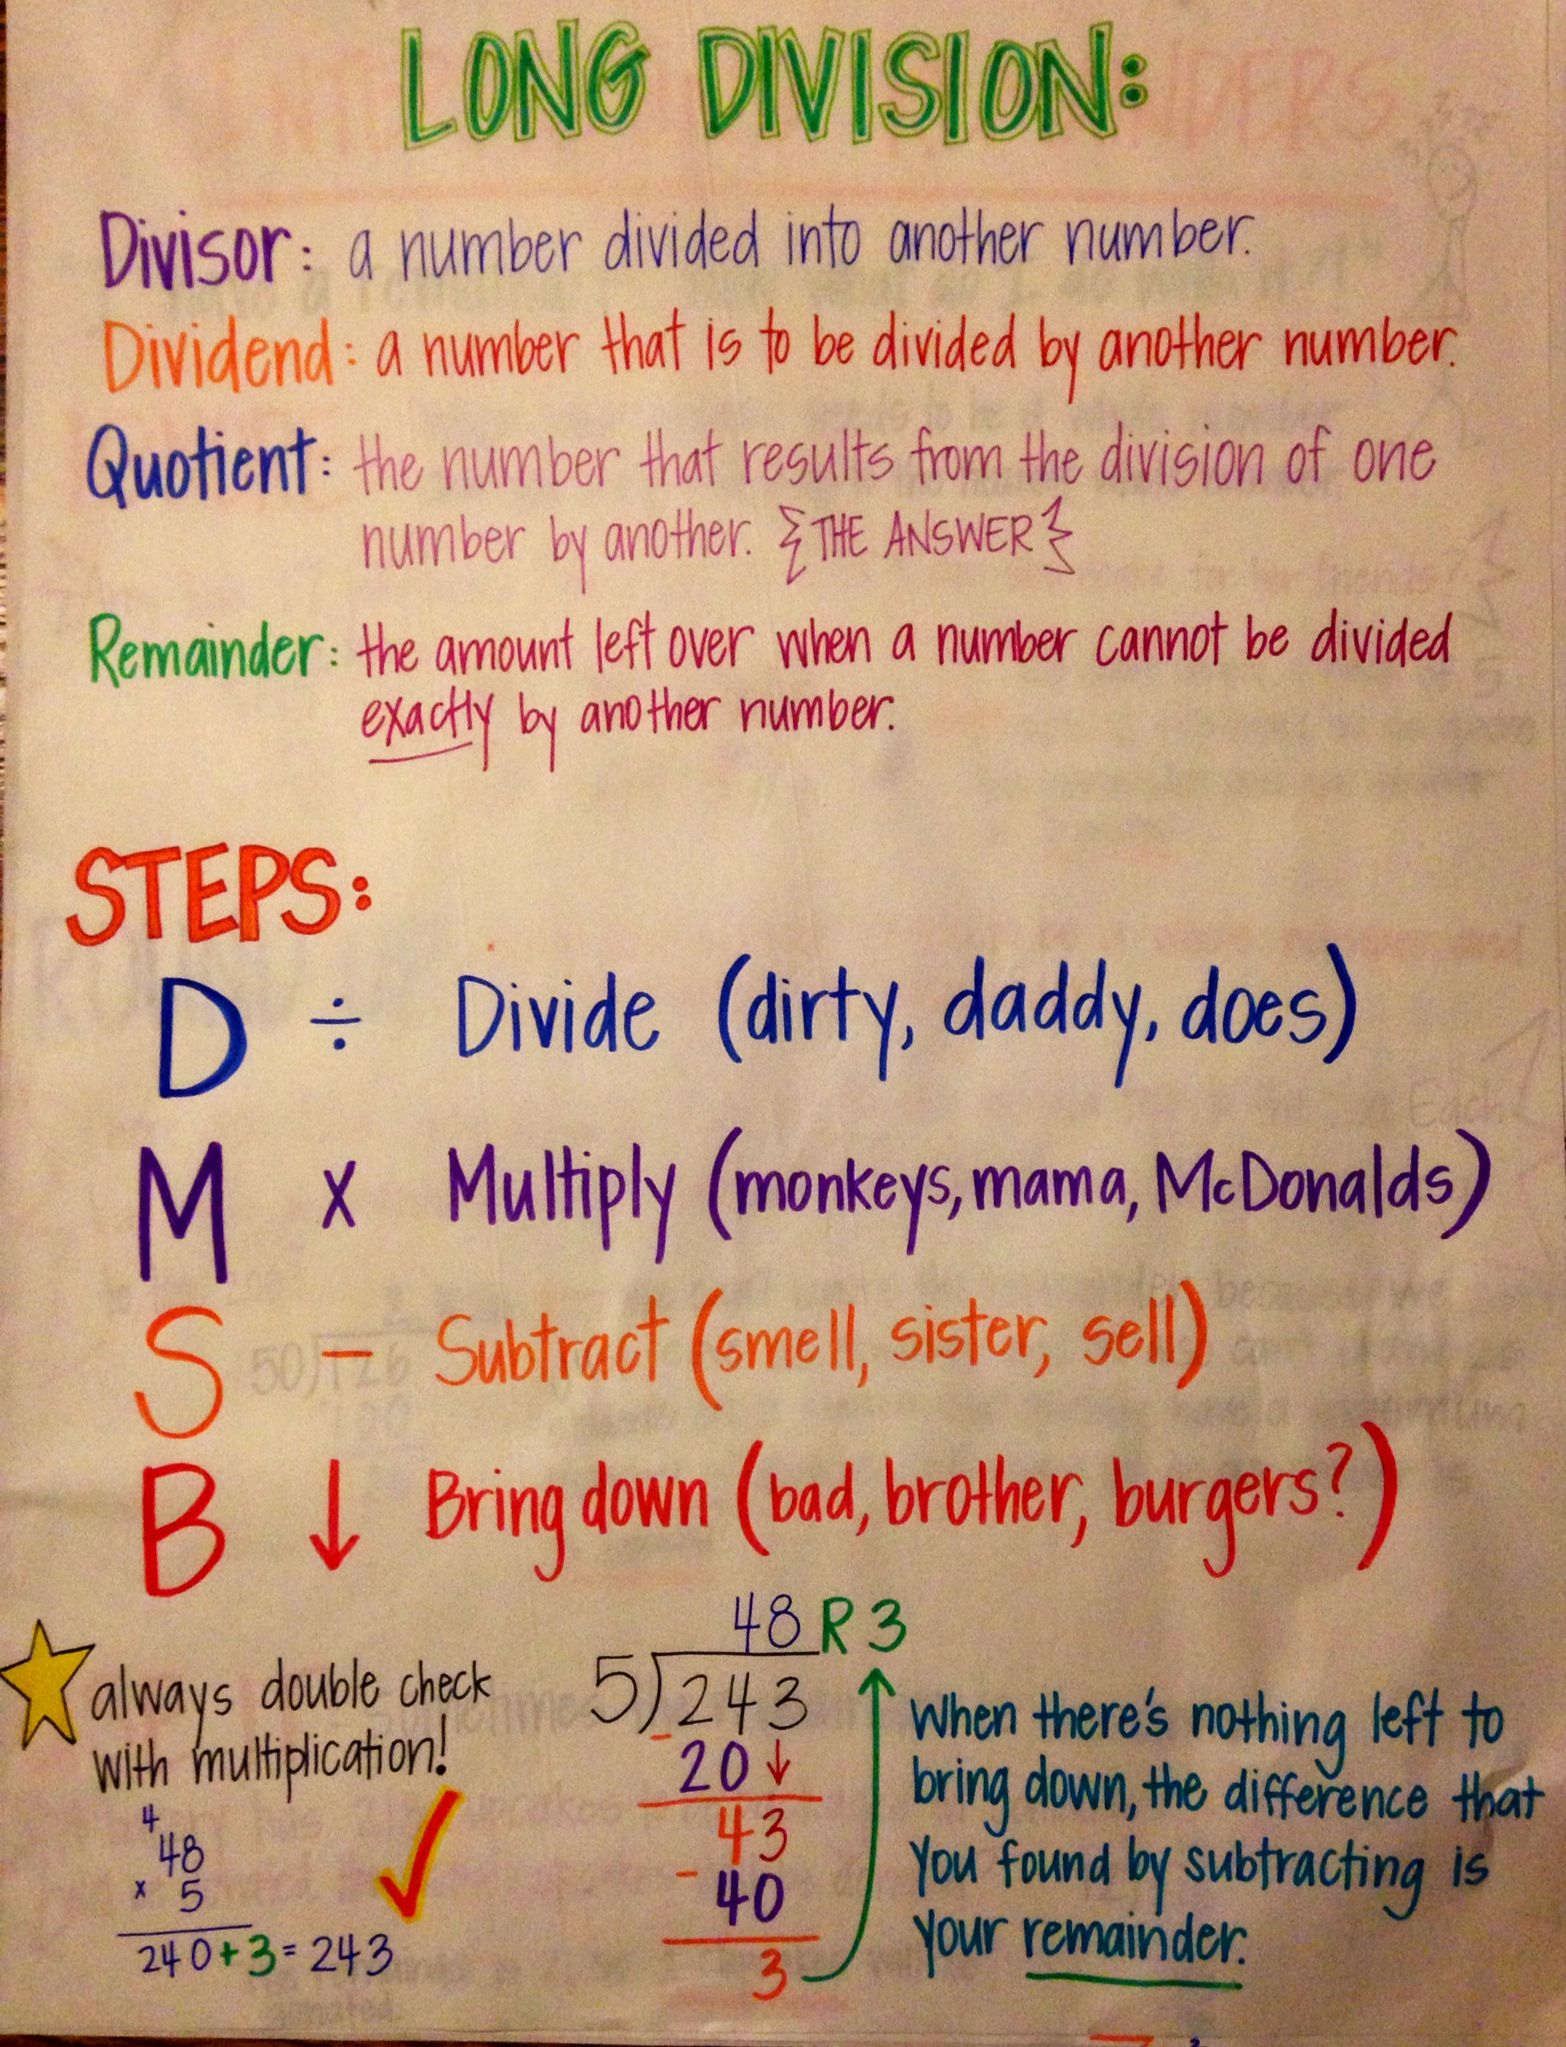 LONG DIVISION:
Divisor: a number divided into another number.
Dividend: a number that is to be divided by another number.
Quotient: the number that results from the division of one
number by another. {THE ANSWER}
Remainder: the amount left over when a number cannot be divided
exactly by another number.
STEPS:
D ÷ Divide (dirty, daddy, does)
M x Multiply (monkeys, mama, McDonalds)
S - Subtract (smell, sister, sell)
B ↓ Bring down (bad, brother, burgers?)
always double check
with multiplication!
4
48
x 5
240+3=243
48 R 3
5)243
- 20↓
43
- 40
3
When there's nothing left to
bring down, the difference that
you found by subtracting is
your remainder.